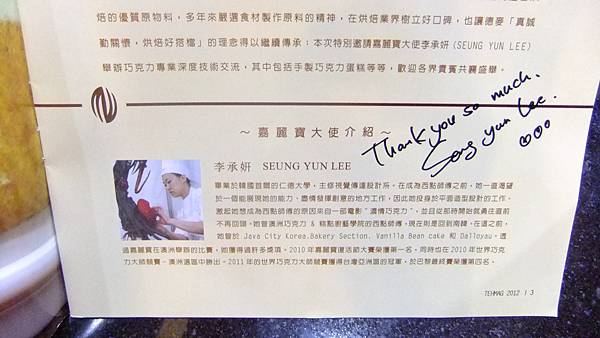 焙的優質原物料，多年來嚴選食材製作原料的精神，在烘焙業界樹立好口碑，也讓德麥「真誠
勤關懷，烘焙好搭檔」的理念得以繼續傳承；本次特別邀請嘉麗寶大使李承妍(SEUNG YUN LEE)
舉辦巧克力專業深度技術交流，其中包括手製巧克力蛋糕等等，歡迎各界貴賓共襄盛舉。
Thank you so much.
Seung yun Lee.
～嘉麗寶大使介紹～
李承妍 SEUNG YUN LEE
畢業於韓國首爾的仁德大學，主修視覺傳達設計系。在成為西點師傅之前，她一直渴望
於一個能展現她的能力、盡情發揮創意的地方工作，因此她投身於平面造型設計的工作。
激起她想成為西點師傅的原因來自一部電影"濃情巧克力"，並且從那時開始就勇往直前
不再回頭。她曾澳洲巧克力 & 糕點廚藝學院的西點師傅。現在則是回到南韓。在這之前，
她曾於 Java City Korea.Bakery Section, Vanilla Bean cake 和 Dalloyau。透
過嘉麗寶在澳洲舉辦的比賽，她獲得過許多獎項。2010年嘉麗寶復活節大賽榮獲第一名。同時也在2010年世界巧克
力大師競賽-澳洲選區中勝出。2011年的世界巧克力大師競賽獲得台灣亞洲區的冠軍。於巴黎最終賽榮獲第四名。
TEHMAG 2012 | 3